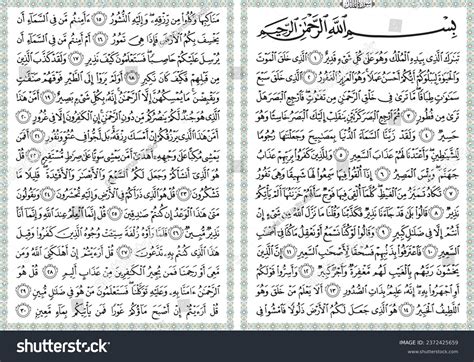 سورة الملك
بِسْمِ ٱللَّهِ ٱلرَّحْمَٰنِ ٱلرَّحِيمِ
تَبَٰرَكَ ٱلَّذِي بِيَدِهِ ٱلْمُلْكُ وَهُوَ عَلَىٰ كُلِّ شَيْءٍ قَدِيرٌ ١ ٱلَّذِي خَلَقَ ٱلْمَوْتَ
وَٱلْحَيَوٰةَ لِيَبْلُوَكُمْ أَيُّكُمْ أَحْسَنُ عَمَلًا وَهُوَ ٱلْعَزِيزُ ٱلْغَفُورُ ٢ ٱلَّذِي خَلَقَ سَبْعَ
سَمَٰوَٰتٍ طِبَاقًا مَّا تَرَىٰ فِي خَلْقِ ٱلرَّحْمَٰنِ مِن تَفَٰوُتٍ فَٱرْجِعِ ٱلْبَصَرَ هَلْ
تَرَىٰ مِن فُطُورٍ ٣ ثُمَّ ٱرْجِعِ ٱلْبَصَرَ كَرَّتَيْنِ يَنقَلِبْ إِلَيْكَ ٱلْبَصَرُ خَاسِئًا وَهُوَ
حَسِيرٌ ٤ وَلَقَدْ زَيَّنَّا ٱلسَّمَآءَ ٱلدُّنْيَا بِمَصَٰبِيحَ وَجَعَلْنَٰهَا رُجُومًا
لِّلشَّيَٰطِينِ وَأَعْتَدْنَا لَهُمْ عَذَابَ ٱلسَّعِيرِ ٥ وَلِلَّذِينَ كَفَرُوا۟ بِرَبِّهِمْ
عَذَابُ جَهَنَّمَ وَبِئْسَ ٱلْمَصِيرُ ٦ إِذَآ أُلْقُوا۟ فِيهَا سَمِعُوا۟ لَهَا شَهِيقًا وَهِيَ
تَفُورُ ٧ تَكَادُ تَمَيَّزُ مِنَ ٱلْغَيْظِ كُلَّمَآ أُلْقِيَ فِيهَا فَوْجٌ سَأَلَهُمْ خَزَنَتُهَآ أَلَمْ يَأْتِكُمْ
نَذِيرٌ ٨ قَالُوا۟ بَلَىٰ قَدْ جَآءَنَا نَذِيرٌ فَكَذَّبْنَا وَقُلْنَا مَا نَزَّلَ ٱللَّهُ مِن شَيْءٍ إِنْ
أَنتُمْ إِلَّا فِي ضَلَٰلٍ كَبِيرٍ ٩ وَقَالُوا۟ لَوْ كُنَّا نَسْمَعُ أَوْ نَعْقِلُ مَا كُنَّا فِيٓ
أَصْحَٰبِ ٱلسَّعِيرِ ١٠ فَٱعْتَرَفُوا۟ بِذَنۢبِهِمْ فَسُحْقًا لِّأَصْحَٰبِ ٱلسَّعِيرِ ١١ إِنَّ
ٱلَّذِينَ يَخْشَوْنَ رَبَّهُم بِٱلْغَيْبِ لَهُم مَّغْفِرَةٌ وَأَجْرٌ كَبِيرٌ ١٢ وَأَسِرُّوا۟
قَوْلَكُمْ أَوِ ٱجْهَرُوا۟ بِهِۦٓ إِنَّهُۥ عَلِيمٌۢ بِذَاتِ ٱلصُّدُورِ ١٣ أَلَا يَعْلَمُ مَنْ خَلَقَ وَهُوَ
ٱللَّطِيفُ ٱلْخَبِيرُ ١٤ هُوَ ٱلَّذِي جَعَلَ لَكُمُ ٱلْأَرْضَ ذَلُولًا فَٱمْشُوا۟ فِي
مَنَاكِبِهَا وَكُلُوا۟ مِن رِّزْقِهِۦ وَإِلَيْهِ ٱلنُّشُورُ ١٥ ءَأَمِنتُم مَّن فِي ٱلسَّمَآءِ أَن
يَخْسِفَ بِكُمُ ٱلْأَرْضَ فَإِذَا هِيَ تَمُورُ ١٦ أَمْ أَمِنتُم مَّن فِي ٱلسَّمَآءِ أَن
يُرْسِلَ عَلَيْكُمْ حَاصِبًا فَسَتَعْلَمُونَ كَيْفَ نَذِيرِ ١٧ وَلَقَدْ كَذَّبَ
ٱلَّذِينَ مِن قَبْلِهِمْ فَكَيْفَ كَانَ نَكِيرِ ١٨ أَوَلَمْ يَرَوْا۟ إِلَى ٱلطَّيْرِ فَوْقَهُمْ صَٰٓفَّٰتٍ
وَيَقْبِضْنَ مَا يُمْسِكُهُنَّ إِلَّا ٱلرَّحْمَٰنُ إِنَّهُۥ بِكُلِّ شَيْءٍۭ بَصِيرٌ ١٩
أَمَّنْ هَٰذَا ٱلَّذِي هُوَ جُندٌ لَّكُمْ يَنصُرُكُم مِّن دُونِ ٱلرَّحْمَٰنِ إِنِ ٱلْكَٰفِرُونَ إِلَّا فِي
غُرُورٍ ٢٠ أَمَّنْ هَٰذَا ٱلَّذِي يَرْزُقُكُمْ إِنْ أَمْسَكَ رِزْقَهُۥ بَل لَّجُّوا۟ فِي عُتُوٍّ وَنُفُورٍ ٢١
أَفَمَن يَمْشِي مُكِبًّا عَلَىٰ وَجْهِهِۦٓ أَهْدَىٰٓ أَمَّن يَمْشِي سَوِيًّا عَلَىٰ صِرَٰطٍ مُّسْتَقِيمٍ
٢٢ قُلْ هُوَ ٱلَّذِيٓ أَنشَأَكُمْ وَجَعَلَ لَكُمُ ٱلسَّمْعَ وَٱلْأَبْصَٰرَ وَٱلْأَفْـِٔدَةَ قَلِيلًا مَّا
تَشْكُرُونَ ٢٣ قُلْ هُوَ ٱلَّذِي ذَرَأَكُمْ فِي ٱلْأَرْضِ وَإِلَيْهِ تُحْشَرُونَ ٢٤ وَيَقُولُونَ
مَتَىٰ هَٰذَا ٱلْوَعْدُ إِن كُنتُمْ صَٰدِقِينَ ٢٥ قُلْ إِنَّمَا ٱلْعِلْمُ عِندَ ٱللَّهِ وَإِنَّمَآ أَنَا۠
نَذِيرٌ مُّبِينٌ ٢٦ فَلَمَّا رَأَوْهُ زُلْفَةً سِيٓـَٔتْ وُجُوهُ ٱلَّذِينَ كَفَرُوا۟ وَقِيلَ
هَٰذَا ٱلَّذِي كُنتُم بِهِۦ تَدَّعُونَ ٢٧ قُلْ أَرَءَيْتُمْ إِنْ أَهْلَكَنِيَ ٱللَّهُ
وَمَن مَّعِيَ أَوْ رَحِمَنَا فَمَن يُجِيرُ ٱلْكَٰفِرِينَ مِنْ عَذَابٍ أَلِيمٍ ٢٨ قُلْ هُوَ
ٱلرَّحْمَٰنُ ءَامَنَّا بِهِۦ وَعَلَيْهِ تَوَكَّلْنَا فَسَتَعْلَمُونَ مَنْ هُوَ فِي ضَلَٰلٍ مُّبِينٍ
٢٩ قُلْ أَرَءَيْتُمْ إِنْ أَصْبَحَ مَآؤُكُمْ غَوْرًا فَمَن يَأْتِيكُم بِمَآءٍ مَّعِينٍۭ ٣٠
shutterstock
shutterstock.com · 2372425659
www.shutterstock.com